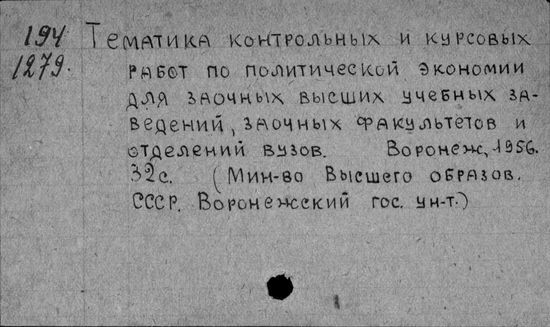 194 Тематика контрольных и курсовых
1279. работ по политической экономии
для заочных высших учебных за-
ведений, заочных факультетов и
отделений вузов. Воронеж, 1956.
32с. (Мин-во Высшего образов.
СССР. Воронежский гос. ун-т.)